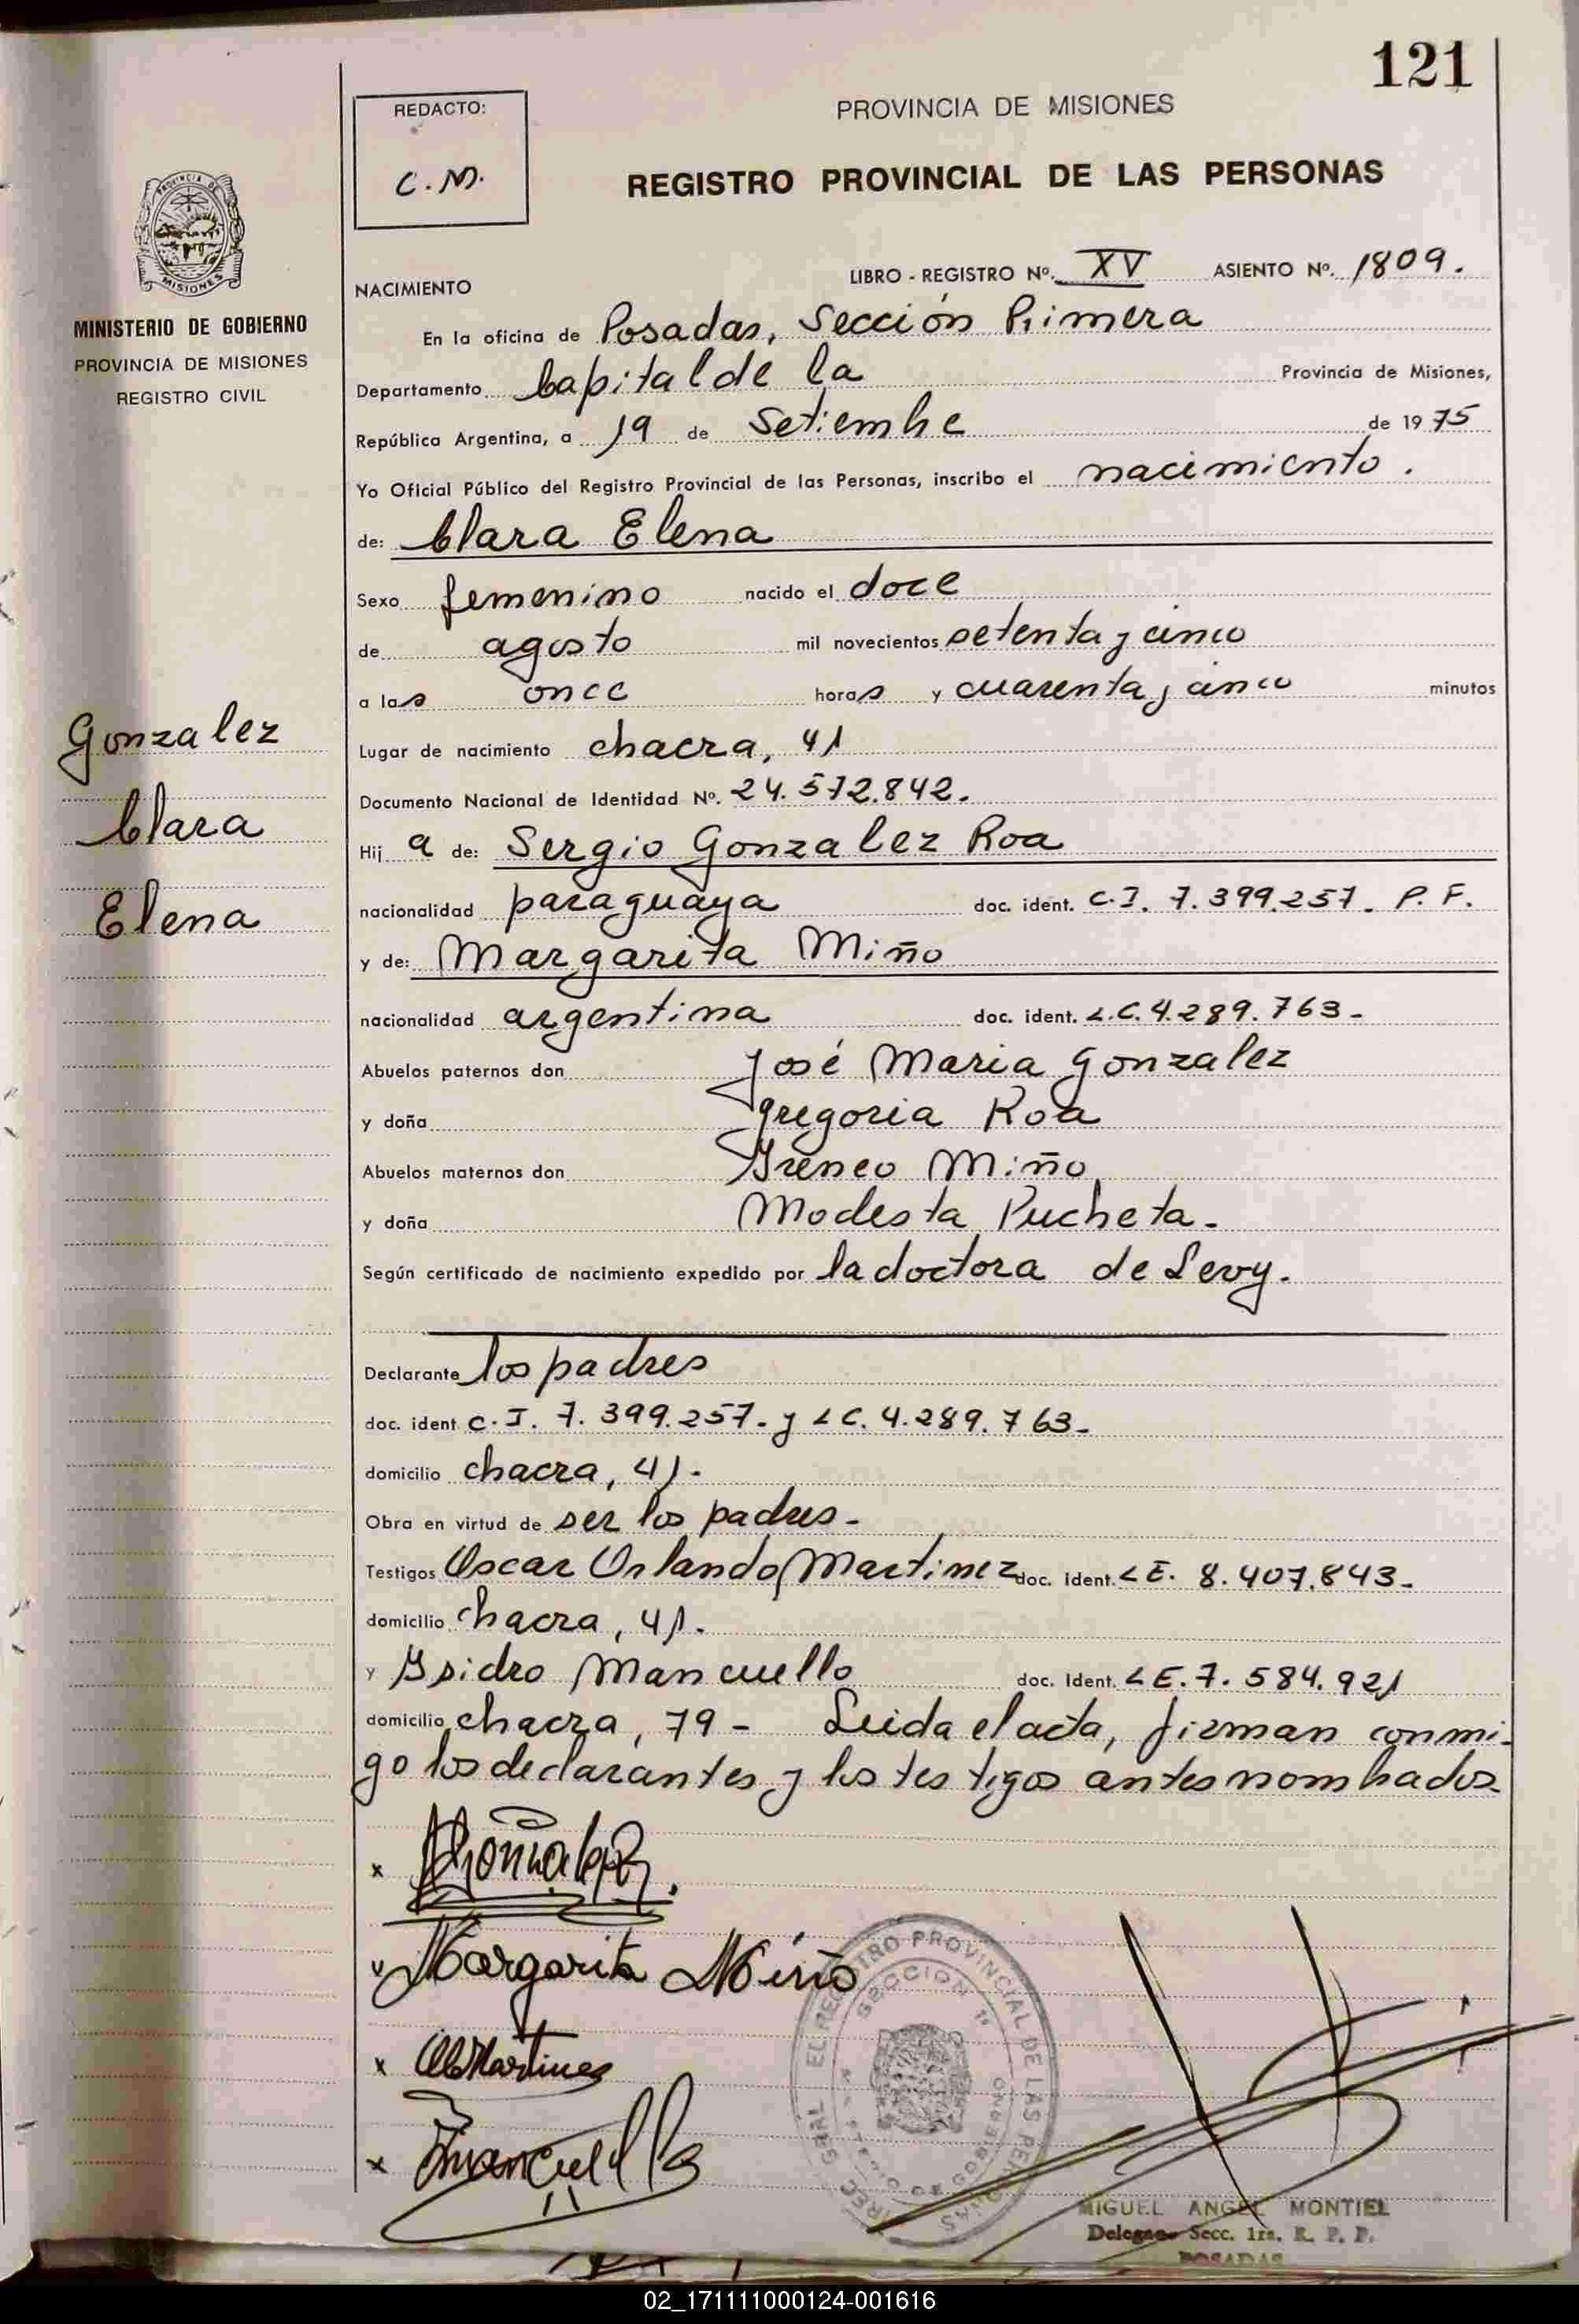 121
REDACTO:
C.M.
PROVINCIA DE MISIONES
REGISTRO PROVINCIAL DE LAS PERSONAS
PROVINCIA DE
MISIONES
MINISTERIO DE GOBIERNO
PROVINCIA DE MISIONES
REGISTRO CIVIL
Gonzalez
Clara
Elena
LIBRO - REGISTRO Nº. XV ASIENTO Nº. 1809.
NACIMIENTO
En la oficina de Posadas, Sección Primera
Departamento Capital de la Provincia de Misiones,
República Argentina, a 19 de Setiembre de 1975
Yo Oficial Público del Registro Provincial de las Personas, inscribo el nacimiento.
de: Clara Elena
Sexo femenino nacido el doce
de agosto mil novecientos setenta y cinco
a las once horas y cuarenta y cinco minutos
Lugar de nacimiento chacra, 41
Documento Nacional de Identidad Nº. 24.572.842.
Hij a de: Sergio Gonzalez Roa
nacionalidad paraguaya doc. ident. C.I. 7.399.257. P. F.
y de: Margarita Miño
nacionalidad argentina doc. ident. L.C. 4.289.763-
Abuelos paternos don José Maria Gonzalez
y doña Gregoria Roa
Abuelos maternos don Ireneo Miño
y doña Modesta Pucheta.
Según certificado de nacimiento expedido por la doctora de Levy.
Declarante los padres
doc. ident C.I. 7.399.257- y LC. 4.289.763-
domicilio chacra, 41-
Obra en virtud de ser los padres-
Testigos Oscar Orlando Martinez doc. ident. LE. 8.407.843-
domicilio chacra, 41.
y Isidro Mancuello doc. Ident. LE. 7.584.921
domicilio chacra, 79 - Leida el acta, firman conmi-
go los declarantes y los testigos antes nombrados
x
Margarita Miño
x Martinez
x Mancuello
EL REGISTRO PROVINCIAL DE LAS PER
SECCION 1ª
MIGUEL ANGEL MONTIEL
Delegado Secc. 1ra. R. P. P.
POSADAS
02_171111000124-001616